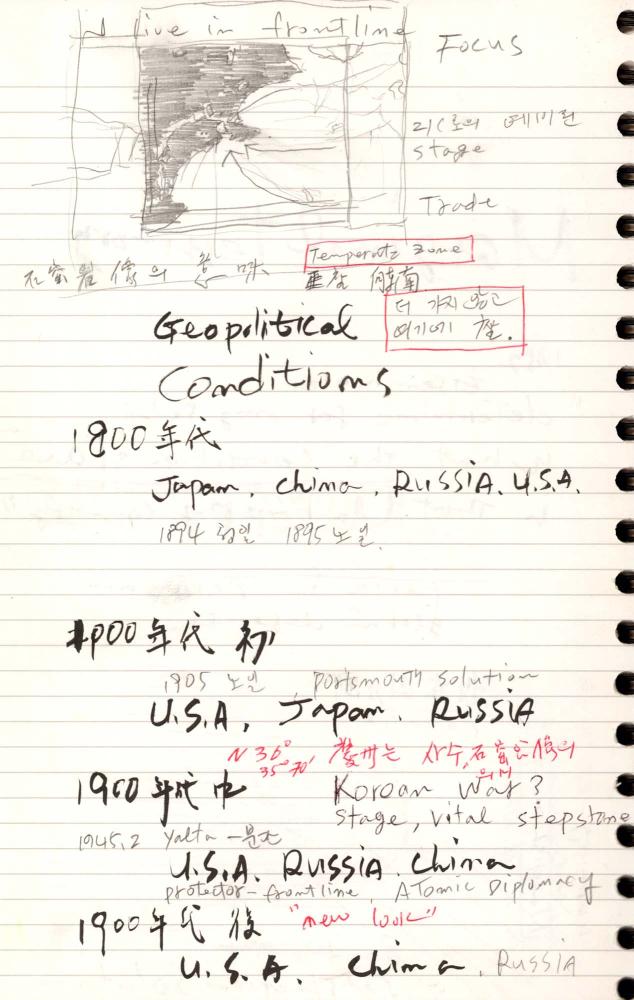 I live in frontline
Focus
stage
Trade
Temperate zone
石窟岩 像의 意味
더 가지 않고
여기에 촟.
Geopolitical
Conditions
1800年代
Japan. China, RUSSIA. U.S.A.
1894 청일 1895 노일.
1900年代 初
1905 노일 portsmouth solution
U.S.A, Japan. RUSSIA
N 36°
35° 70' 慶州는 사수, 石窟岩像의
의미
1900年代 中 Korean War?
stage, vital stepstone
1945.2 Yalta
U.S.A. RUSSIA. China
protector-frontline, ATomic Diplomacy
1900年代 後 "new look"
U.S.A. China. RUSSIA